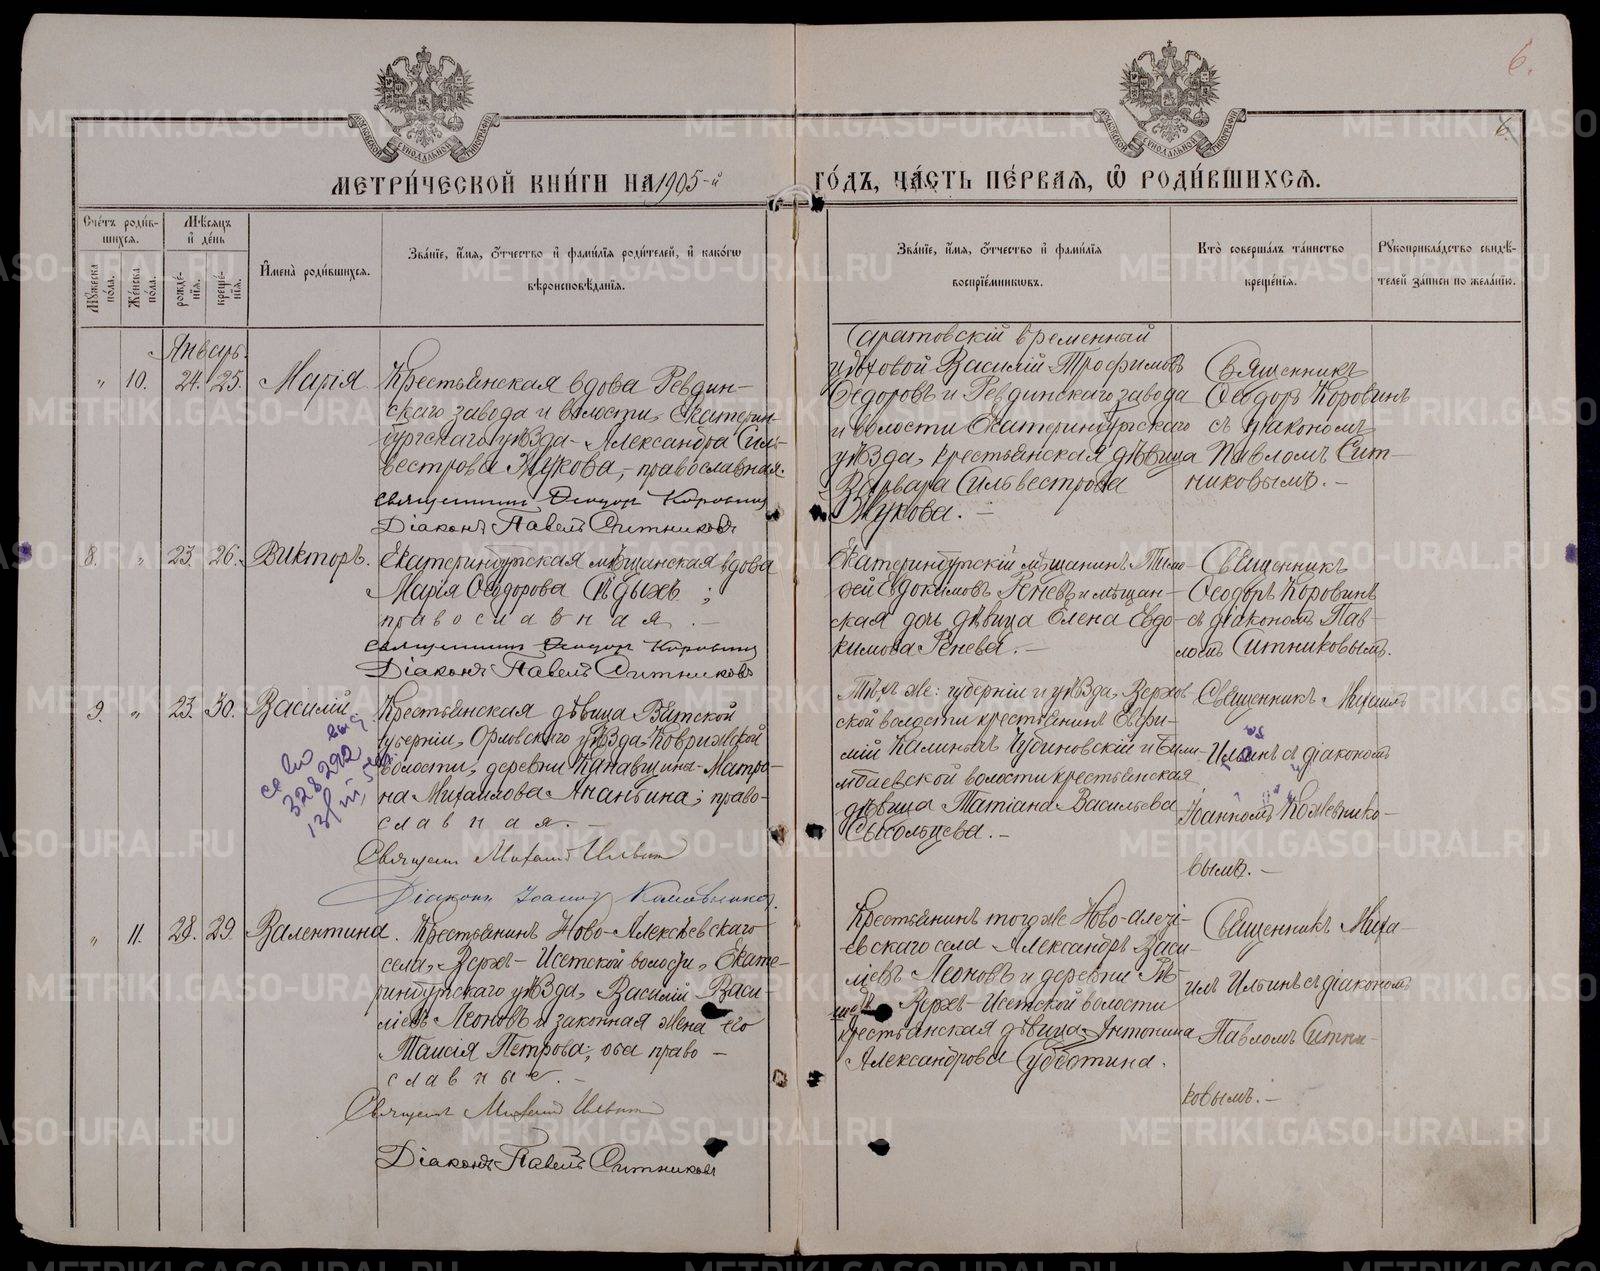 6.
6.
МЕТРИ́ЧЕСКОЙ КНИ́ГИ НА 1905-й ГО́ДЪ, ЧА́СТЬ ПЕ́РВАЯ, Ѡ РОДИ́ВШИХСЯ.
Сче́тъ роди́в-
шихся.
Мѣ́сяцъ
и҆ де́нь
Му́жеска по́ла.
Же́нска по́ла.
рожде́-
нїя.
креще́-
нїя.
И҆мена̀ роди́вшихся.
Зва́нїе, и҆́мя, ѻ҆́тчество и҆ фами́лїя роди́телей, и҆ како́гѡ
вѣроисповѣ́данїя.
Зва́нїе, и҆́мя, ѻ҆́тчество и҆ фами́лїя
воспрїе́мникѡвъ.
Кто̀ соверша́лъ та́инство
креще́нїя.
Рꙋкоприкла́дство свидѣ́-
телей за́писи по жела́нїю.
Январь.
„ 10. 24. 25. Марія
Крестьянская вдова Ревдин-
скаго завода и волости, Екатерин-
бургскаго уѣзда Александра Силь-
вестрова Жукова, православная.
Священникъ Ѳеодоръ Коровинъ
Діаконъ Павелъ Ситниковъ
Саратовскій временный
цеховой Василій Трофимовъ
Ѳедоровъ и Ревдинскаго завода
и волости Екатеринбургскаго
уѣзда, крестьянская дѣвица
Варвара Сильвестрова
Жукова. –
Священникъ
Ѳеодоръ Коровинъ
съ діакономъ
Павломъ Сит-
никовымъ. –
8. „ 23. 26. Викторъ.
Екатеринбургская мѣщанская вдова
Марія Ѳеодорова Сѣдыхъ ;
православная. –
Священникъ Ѳеодоръ Коровинъ
Діаконъ Павелъ Ситниковъ
Екатеринбургскій мѣщанинъ Тимо-
ѳей Евдокимовъ Реневъ и мѣщан-
ская дочь дѣвица Елена Евдо-
кимова Ренева. –
Священникъ
Ѳеодоръ Коровинъ
съ діакономъ Пав-
ломъ Ситниковымъ.
9. „ 23. 30. Василій.
Крестьянская дѣвица Вятской
губерніи, Орловскаго уѣзда, Ковриж­ской
волости, деревни Канавщины Матро-
на Михаилова Ананьина; право-
славная. –
Священ. Михаилъ Ильинъ
Діаконъ Іоаннъ Кожевниковъ.
Тѣхъ же: губерніи и уѣзда, Верхов-
ской волости крестьянинъ Евфи-
мій Калинычъ Чубиновскій и Били-
мбаевской волости крестьянская
дѣвица Татіана Васильева
Сысольцева. –
Священникъ Михаилъ
Ильинъ съ діакономъ
Іоанномъ Кожевнико-
вымъ. –
„ 11. 28. 29. Валентина.
Крестьянинъ Ново-Алексѣевскаго
села, Верхъ-Исетской волости, Екате-
ринбургскаго уѣзда, Василій Васи-
льевъ Леоновъ и законная жена его
Таисія Петрова; оба право-
славные. –
Священ. Михаилъ Ильинъ
Діаконъ Павелъ Ситниковъ
Крестьянинъ того же Ново-Алексѣ-
евскаго села Александръ Васи-
льевъ Леоновъ и деревни Рѣ-
шетъ Верхъ-Исетской волости
крестьянская дѣвица Антонина
Александрова Субботина.
Священникъ Миха-
илъ Ильинъ съ діакономъ
Павломъ Ситни-
ковымъ. –
METRIKI.GASO-URAL.RU